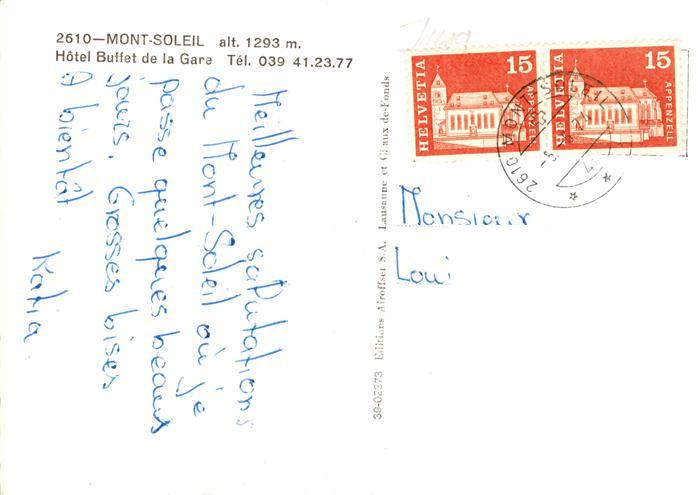 2610—MONT-SOLEIL alt. 1293 m.
Hôtel Buffet de la Gare Tél. 039 41.23.77
Meilleures salutations
du Mont-Soleil où je
passe quelques beaux
jours. Grosses bises
A bientôt
Katia
39-02373 Editions Airoffset S.A. Lausanne et Chaux-de-Fonds
HELVETIA 15 APPENZELL
HELVETIA 15 APPENZELL
2610 MONT-SOLEIL
Monsieur
Loui